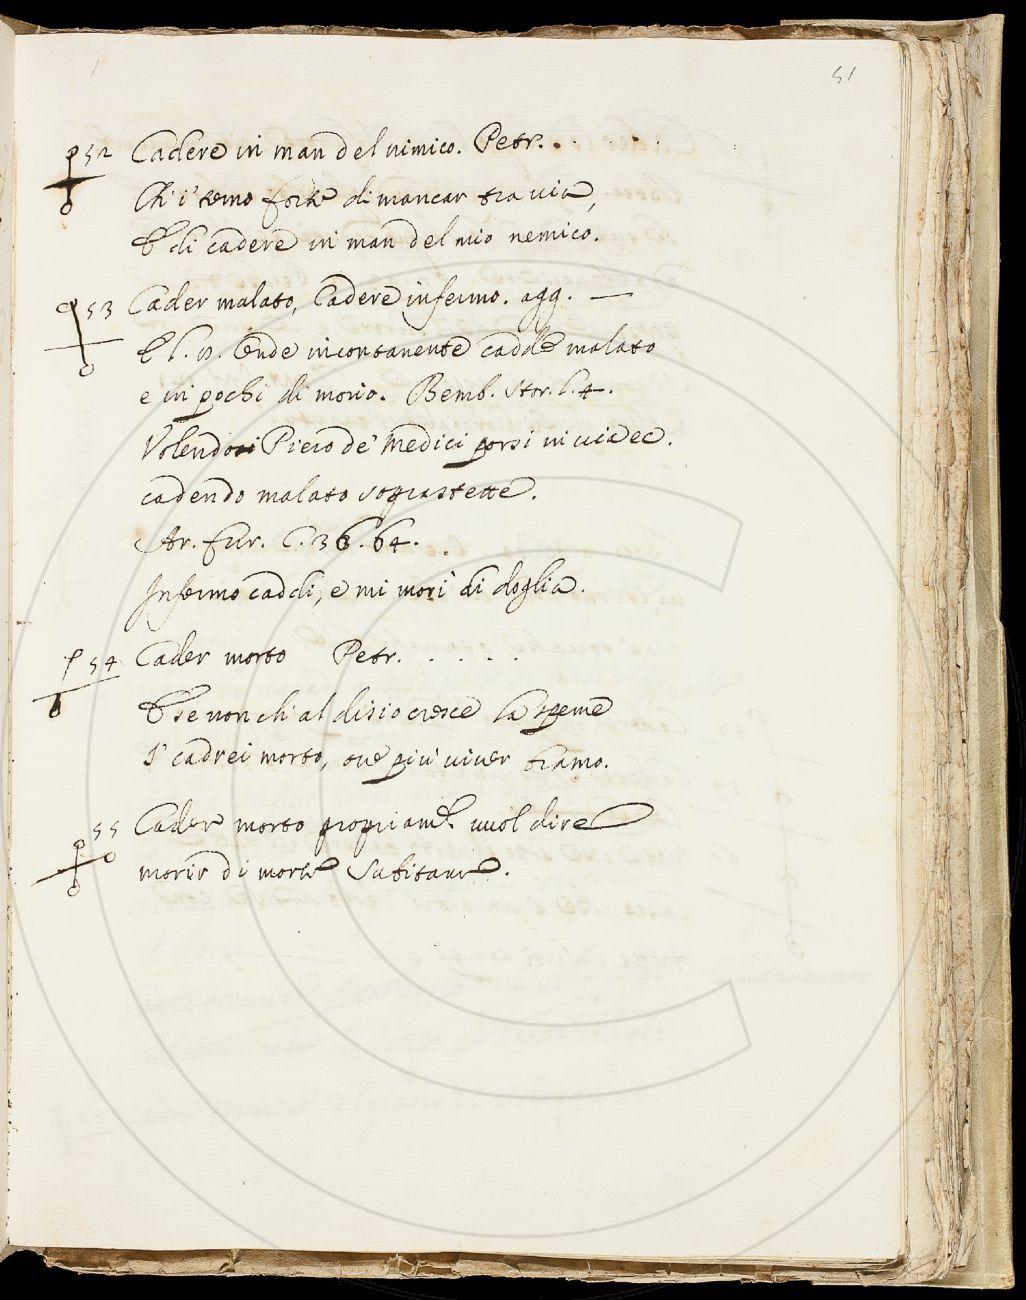 51
52 Cadere in man del nimico. Petr. . . . .
Ch' i' temo forte di mancar tra via,
E di cadere in man del mio nemico.
53 Cader malato, Cadere infermo. agg. —
E l. 12. Onde incontanente cadde malato
e in pochi dì morio. Bemb. Stor. l. 4.
Volendosi Piero de' Medici porsi in via ec.
cadendo malato soprastette.
Ar. fur. C. 36. 64.
Infermo caddi, e mi morì di doglia.
54 Cader morto Petr. . . . . .
E se non ch' al disio cresce la speme
I' cadrei morto, ove più viver bramo.
55 Cader morto propriam.te vuol dire
morir di morte subitana.